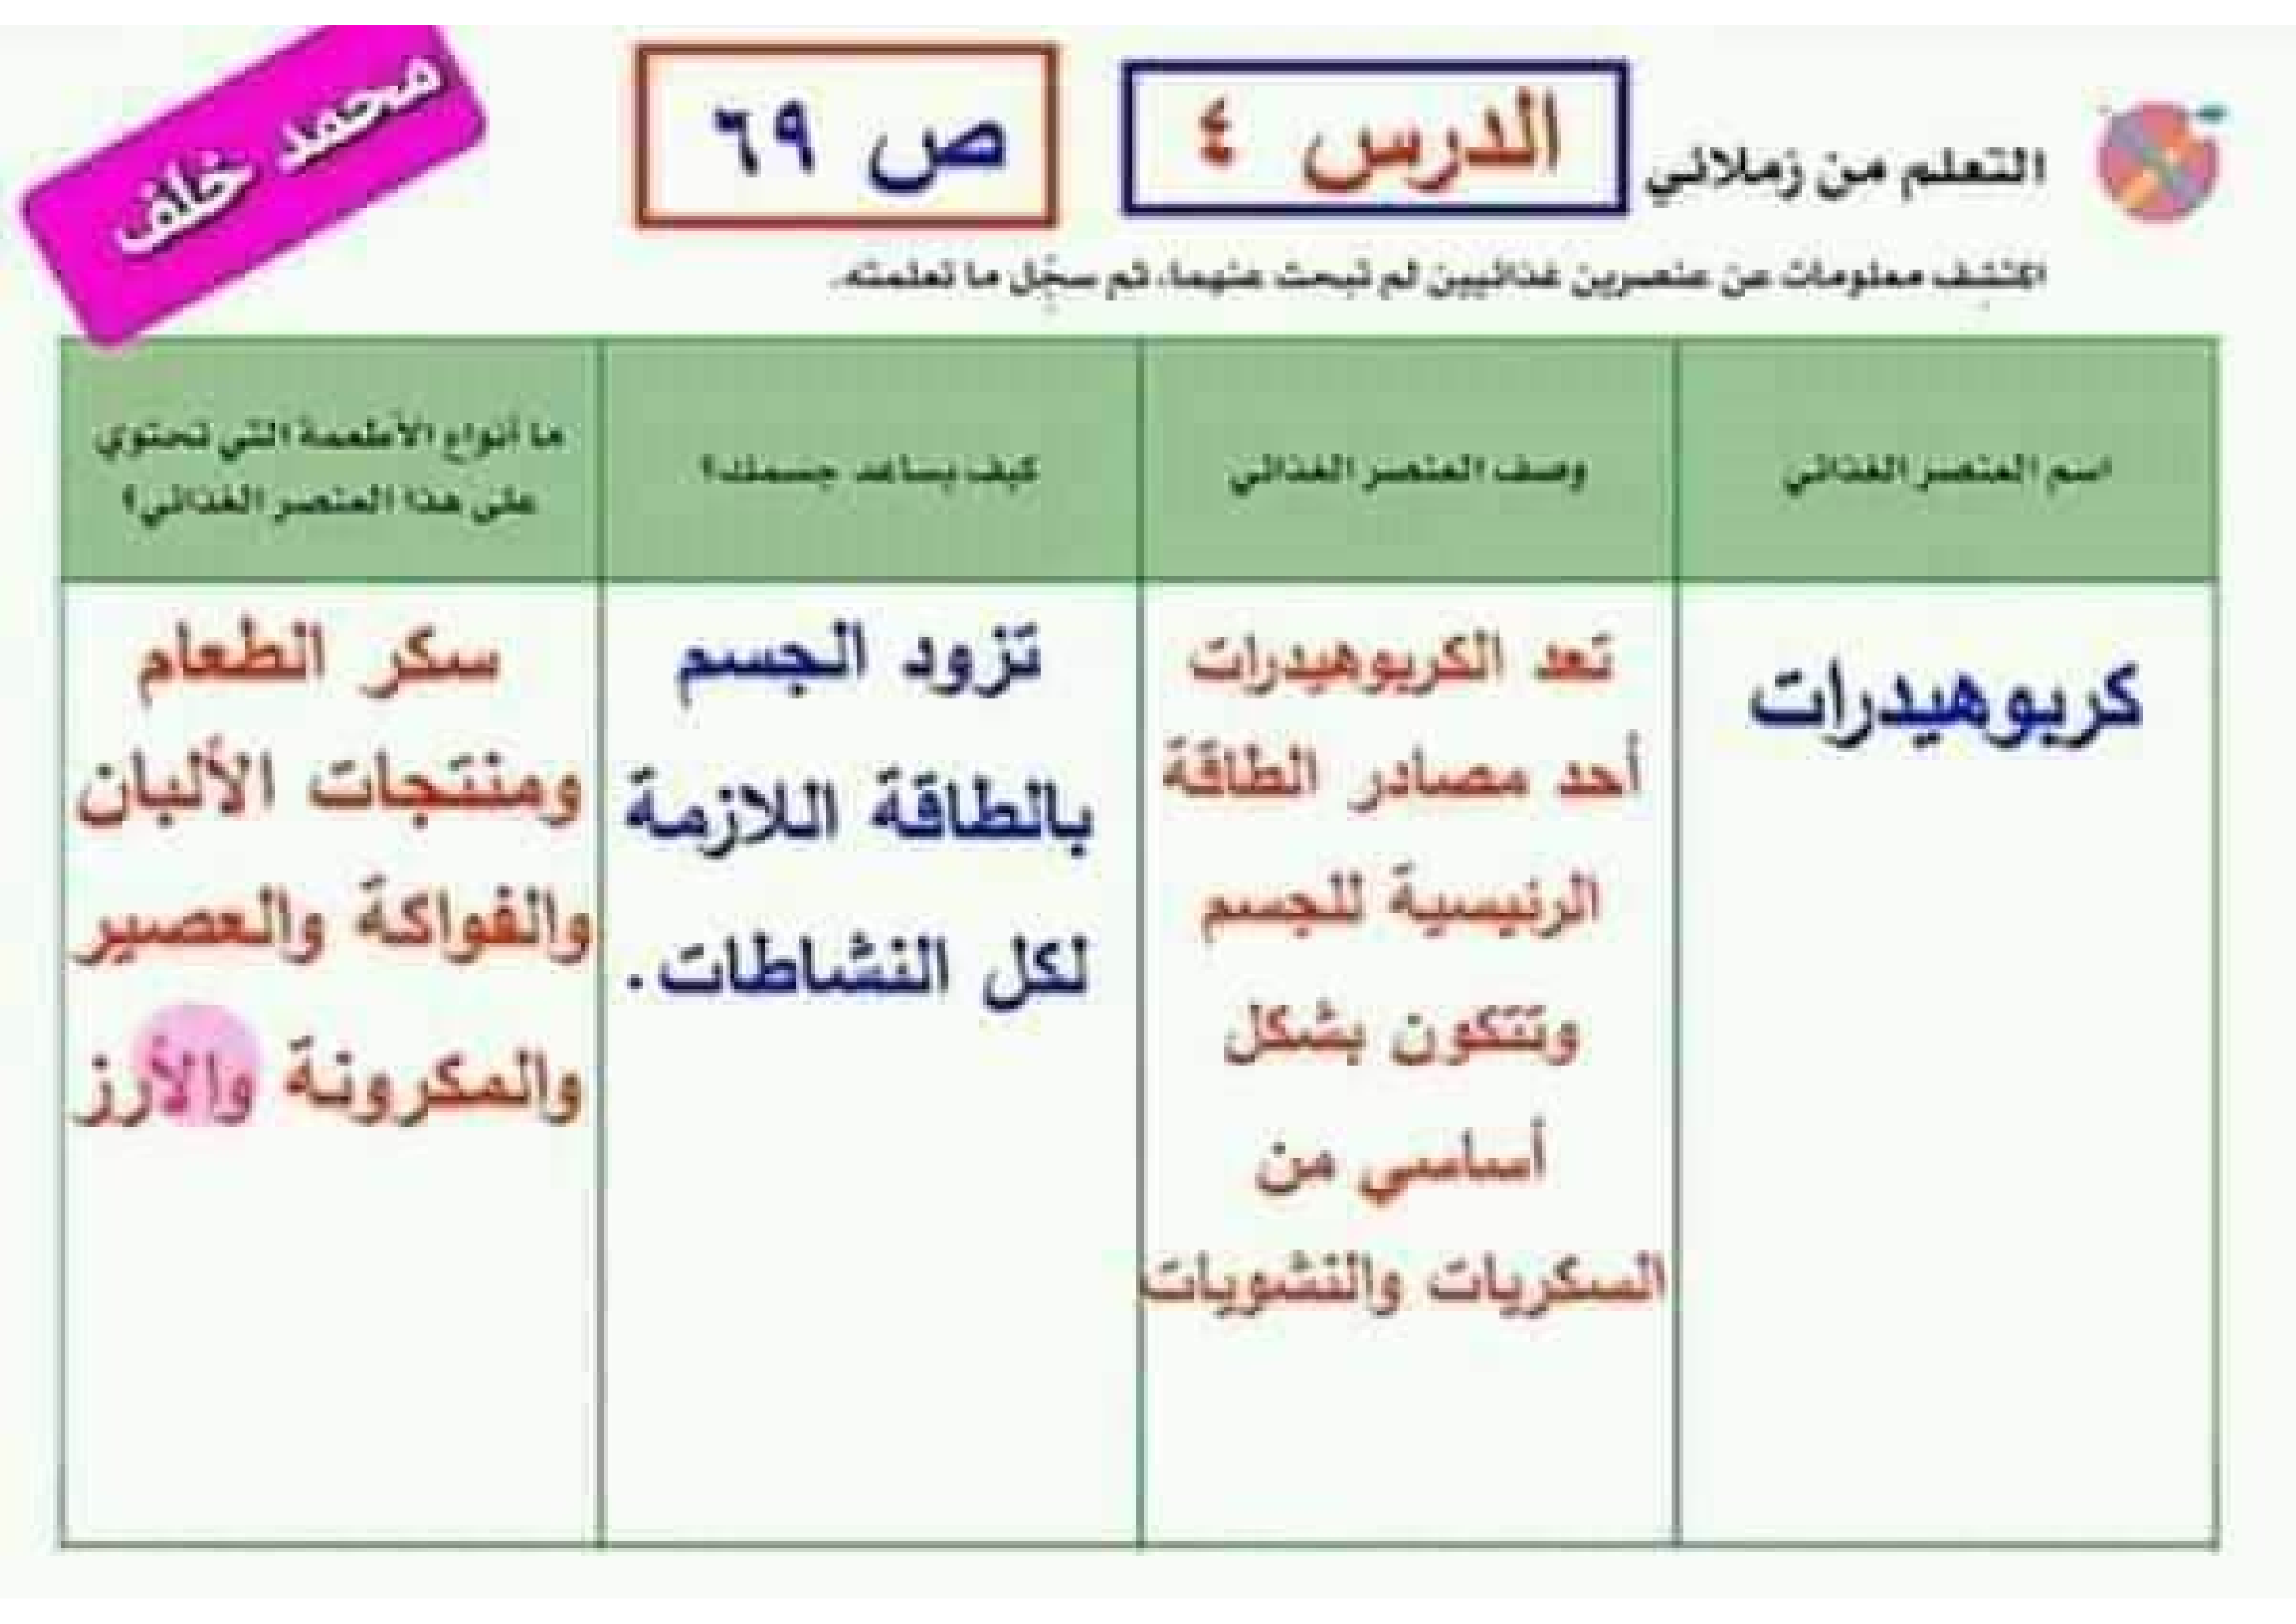 التعلم من زملائي
الدرس ٤
ص ٦٩
محمد خلف
اكتشف معلومات عن عنصرين غذائيين لم تبحث عنهما، ثم سجّل ما تعلمته.
اسم العنصر الغذائي
وصف العنصر الغذائي
كيف يساعد جسمك؟
ما أنواع الأطعمة التي تحتوي
على هذا العنصر الغذائي؟
كربوهيدرات
تعد الكربوهيدرات
أحد مصادر الطاقة
الرئيسية للجسم
وتتكون بشكل
أساسي من
السكريات والنشويات
تزود الجسم
بالطاقة اللازمة
لكل النشاطات.
سكر الطعام
ومنتجات الألبان
والفواكة والعصير
والمكرونة والأرز